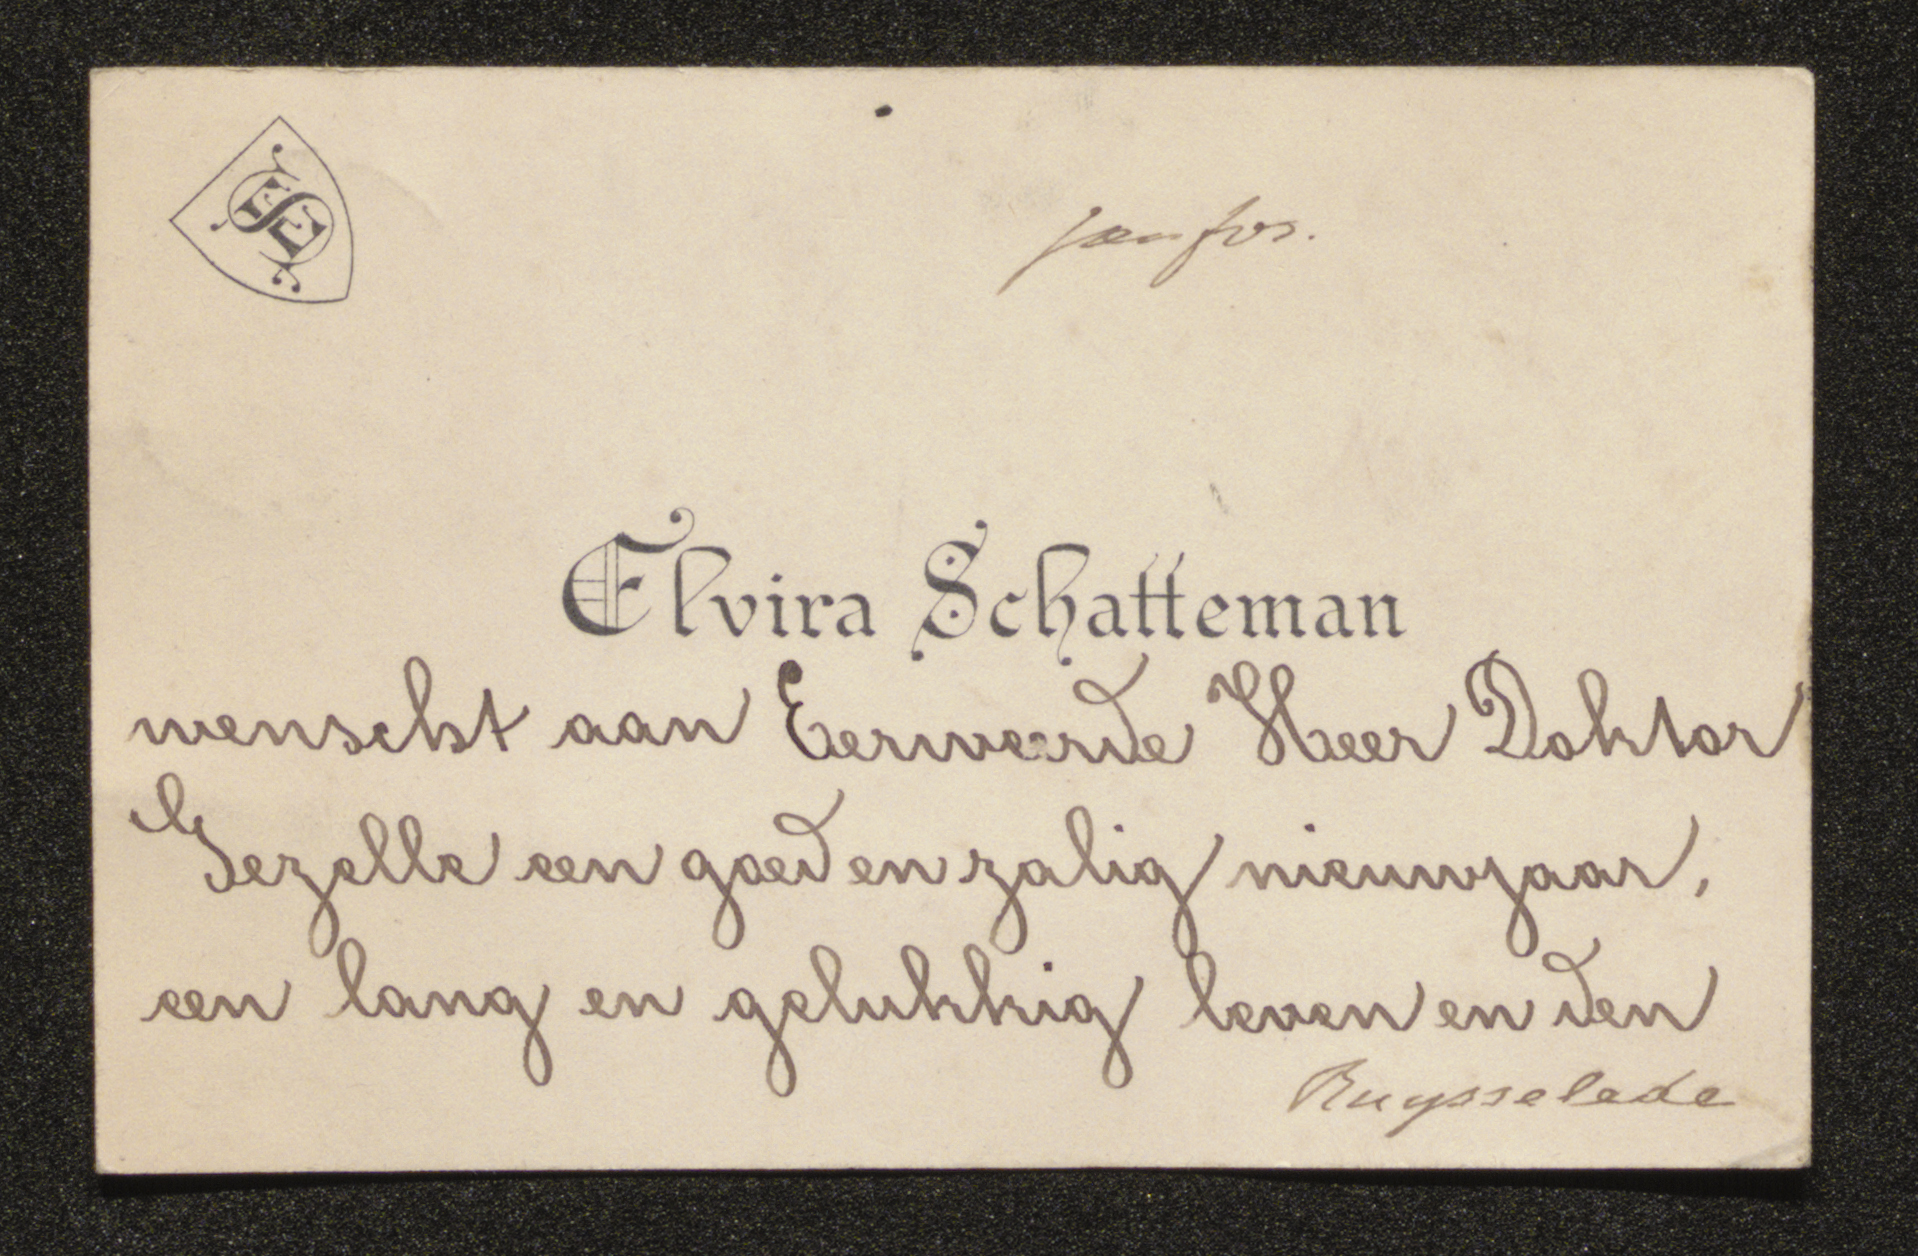 ES
Elvira Schatteman
wenscht aan Eerweerde Heer Doktor
Gezelle een goed en zalig nieuwjaar,
een lang en gelukkig leven en den
Ruysselede